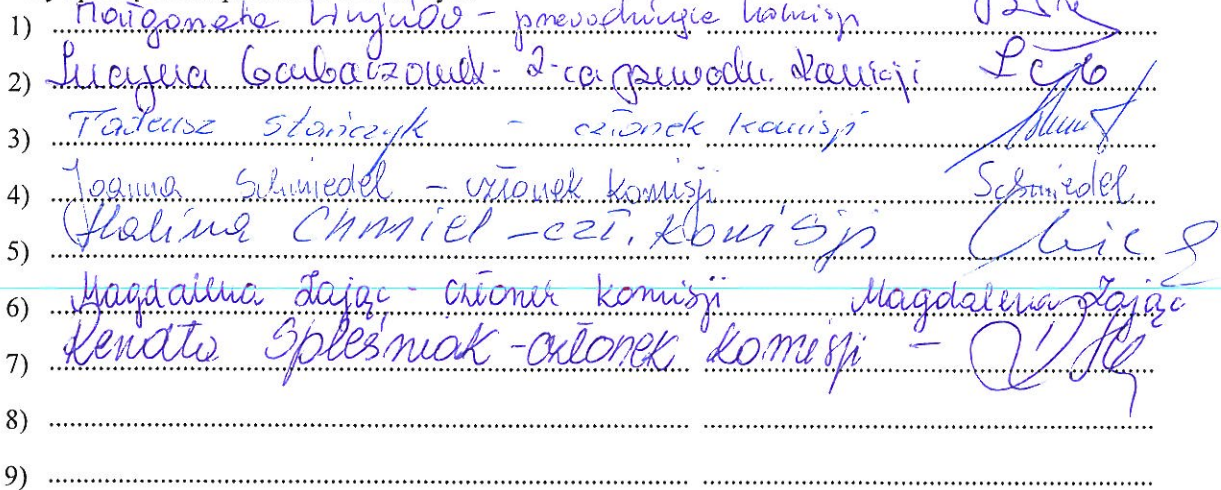 1) Małgorzata - przewodnicząca komisji
2) Garbaczonek - Z-ca przewodn. Komisji
3) Tadeusz Stańczyk - członek komisji
4) Joanna Schmiedel - członek komisji Schmiedel
5) Halina Chmiel - czł. komisji
6) Magdalena Zając - członek komisji Magdalena Zając
7) Renata Spleśniak - członek komisji -
8)
9)